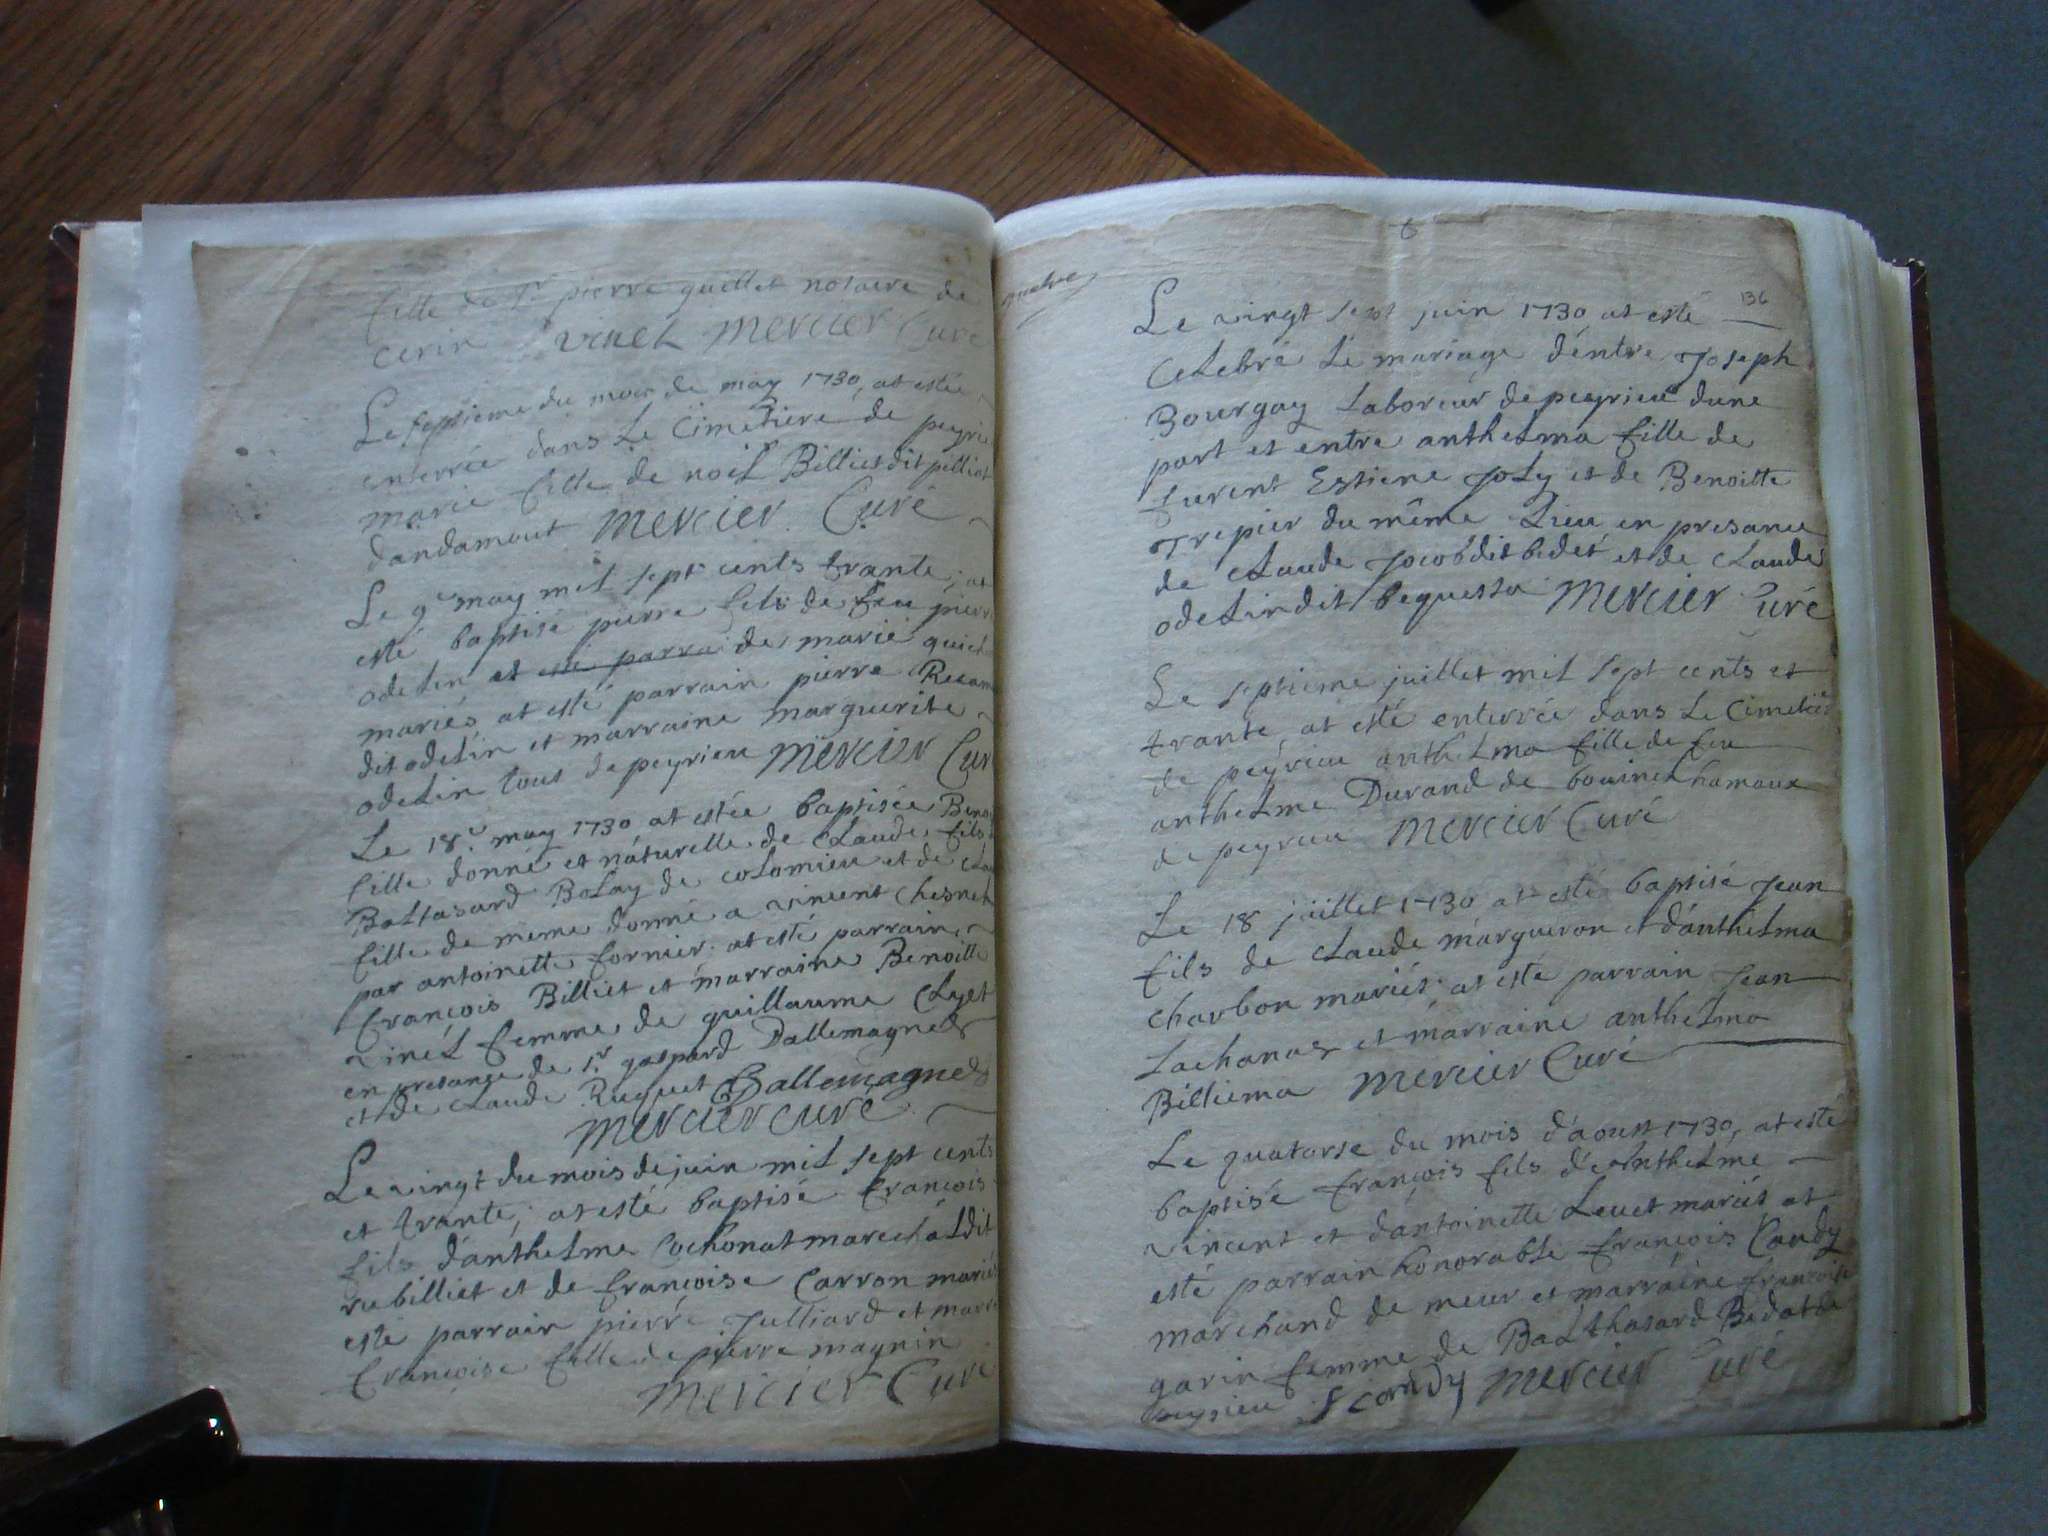 fille de Sr pierre quillet notaire de
cerin vinel mercier Curé
Le septieme du mois de may 1730, at estée
enterrée dans Le Cimetiere de peyrieu
marie fille de noel Billiet dit pelliat
dandamout mercier Curé
Le 9e may mil sept cents trante; at
esté baptisé pierre fils de feu pierre
odelin et esté parrai de marie
mariés at esté parrain pierre
dit odelin et marraine marguerite
odelin tous de peyrieu mercier Curé
Le 18e may 1730 at estée baptisée
fille donné et náturelle de Claude fils
Baltasard Bolay de colomieu et de
fille de même donné a vincent Chesnet
par antoinette fornier. at esté parrain
françois Billiet et marraine Benoitte
vinel femme de guillaume Clyet
en presance de sr gaspard Dallemagne
et de claude Ruguet Dallemagne
mercier curé
Le vingt du mois de juin mil sept cents
et trante, at esté baptisé françois
fils d'anthelme Cochonat marechal dit
rubilliet et de françoise Carron mariés
esté parrain pierre Julliard et marr
françoise fille de pierre magnin
mercier Curé
136
Le vingt sept juin 1730 at esté
Celebré Le mariage d'entre Joseph
Bourgay Laboreur de peyrieu dune
part et entre anthelma fille de
furent Estiene Joly et de Benoitte
Trepier du même Lieu en presance
de claude Jocob dit bedet et de Claude
odelin dit beguessa mercier Curé
Le septieme juillet mil sept cents et
trante, at esté enterrée dans Le Cimetiere
de peyrieu anthelma fille de feu
anthelme Durand de bovinel hamaux
de peyrieu mercier Curé
Le 18 juillet 1730 at esté baptisé Jean
fils de claude margueron et d'anthelma
charbon mariés. at esté parrain Jean
Lachanas et marraine anthelma
Billiema mercier Curé
Le quatorse du mois d'aoust 1730, at esté
baptisé françois fils d'Anthelme
vincent et d'antoinette Levet mariés at
esté parrain honorable françois Candy
marchand de meur et marraine françoise
garin femme de Balthasard Bedat de
peyrieu f candy mercier Curé